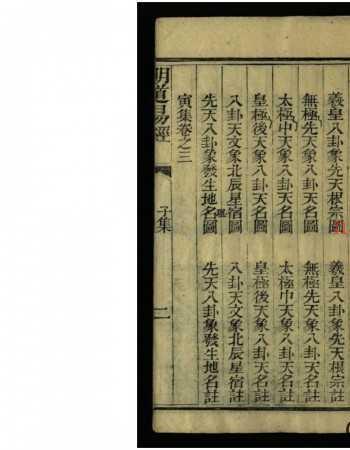 羲皇八卦象先天根宗圖
羲皇八卦象先天根宗註
無極先天象八卦天名圖
無極先天象八卦天名註
太極中天象八卦天名圖
太極中天象八卦天名註
皇極後天象八卦天名圖
皇極後天象八卦天名註
八卦天文象北辰星宿圖
八卦天文象北辰星宿註
先天八卦象發生地名圖
先天八卦象發生地名註
寅集卷之三
明道易經
子集
二